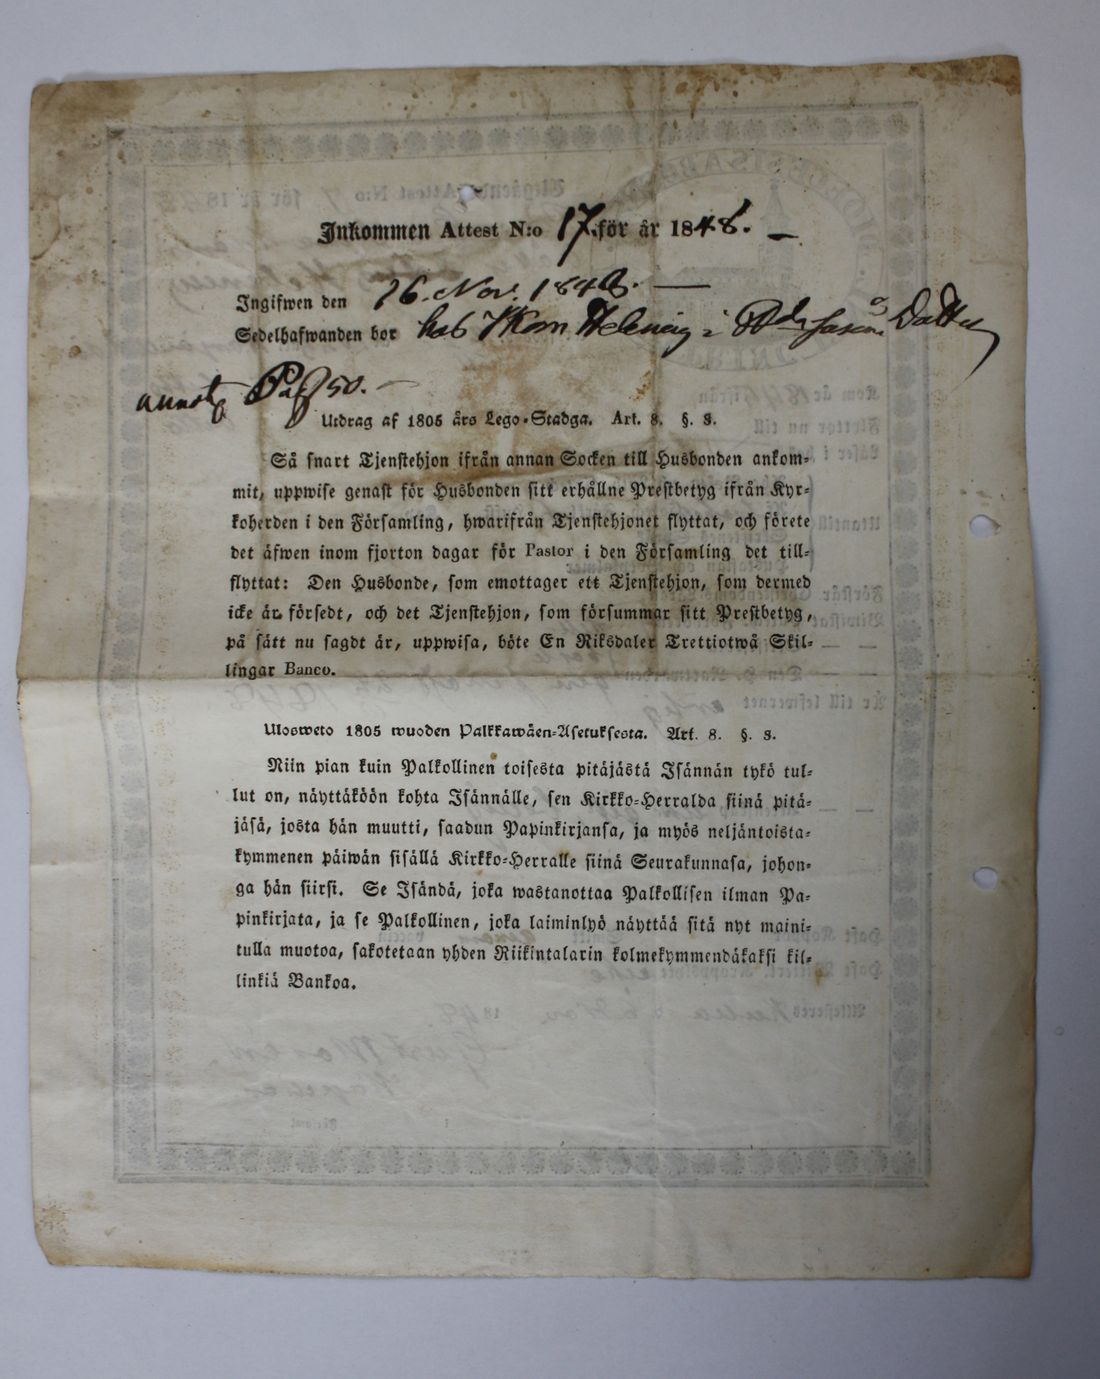 Inkommen Attest N:o 17 för år 1848.
Ingifwen den 16. Nov. 1848.
Sedelhafwanden bor hos i
Pag 50.
Utdrag af 1805 års Lego-Stadga. Art. 8. §. 3.
Så snart Tjenstehjon ifrån annan Socken till Husbonden ankom-
mit, uppwise genast för Husbonden sitt erhållne Prestbetyg ifrån Kyr-
koherden i den Församling, hwarifrån Tjenstehjonet flyttat, och förete
det äfwen inom fjorton dagar för Pastor i den Församling det till-
flyttat: Den Husbonde, som emottager ett Tjenstehjon, som dermed
icke är försedt, och det Tjenstehjon, som försummar sitt Prestbetyg,
på sätt nu sagdt är, uppwisa, böte En Riksdaler Trettiotwå Skil-
lingar Banco.
Ulosweto 1805 wuoden Palkkawäen-Asetuksesta. Art. 8. §. 3.
Niin pian kuin Palkollinen toisesta pitäjästä Isännän tykö tul-
lut on, näyttäköön kohta Isännälle, sen Kirkko-Herralda siinä pitä-
jäsä, josta hän muutti, saadun Papinkirjansa, ja myös neljäntoista-
kymmenen päiwän sisällä Kirkko-Herralle siinä Seurakunnasa, johon-
ga hän siirsi. Se Isändä, joka wastanottaa Palkollisen ilman Pa-
pinkirjata, ja se Palkollinen, joka laiminlyö näyttää sitä nyt maini-
tulla muotoa, sakotetaan yhden Riikintalarin kolmekymmendäkaksi kil-
linkiä Bankoa.